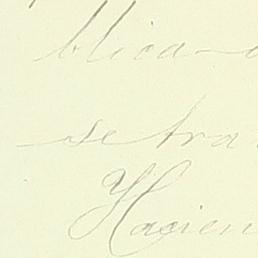 blica
se tra
Hacien